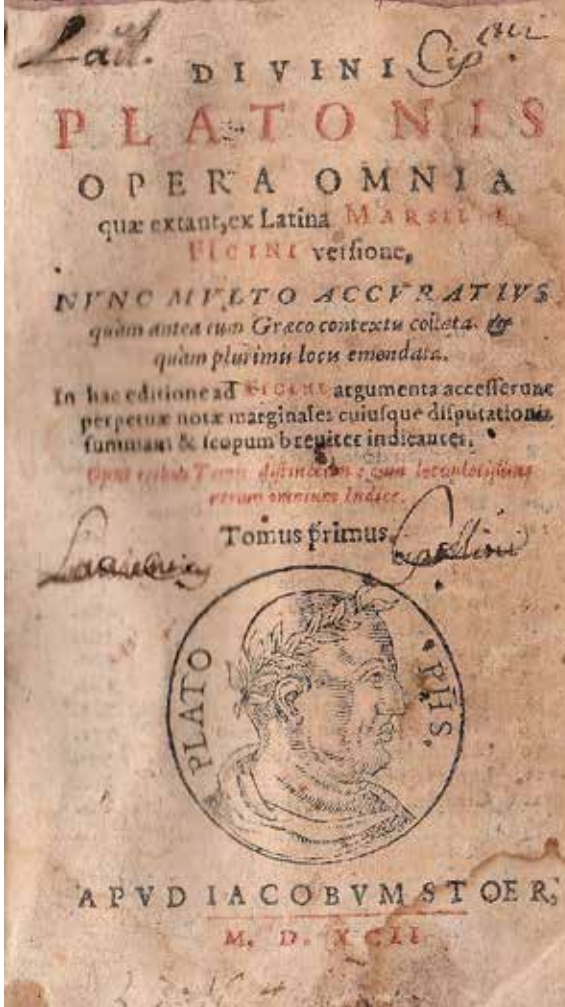 DIVINI
PLATONIS
OPERA OMNIA
quæ extant, ex Latina MARSILII
FICINI versione,
NVNC MVLTO ACCVRATIVS
quàm antea cum Græco contextu collata, &
quàm plurimis locis emendata.
In hac editione ad FICINI argumenta accesserunt
perpetuæ notæ marginales cuiusque disputationis
summam & scopum breuiter indicantes.
Opus tribus Tomis distinctum: cum locupletissimo
rerum omnium Indice.
Tomus primus.
PLATO PHS.
APVD IACOBVM STOER,
M. D. XCII